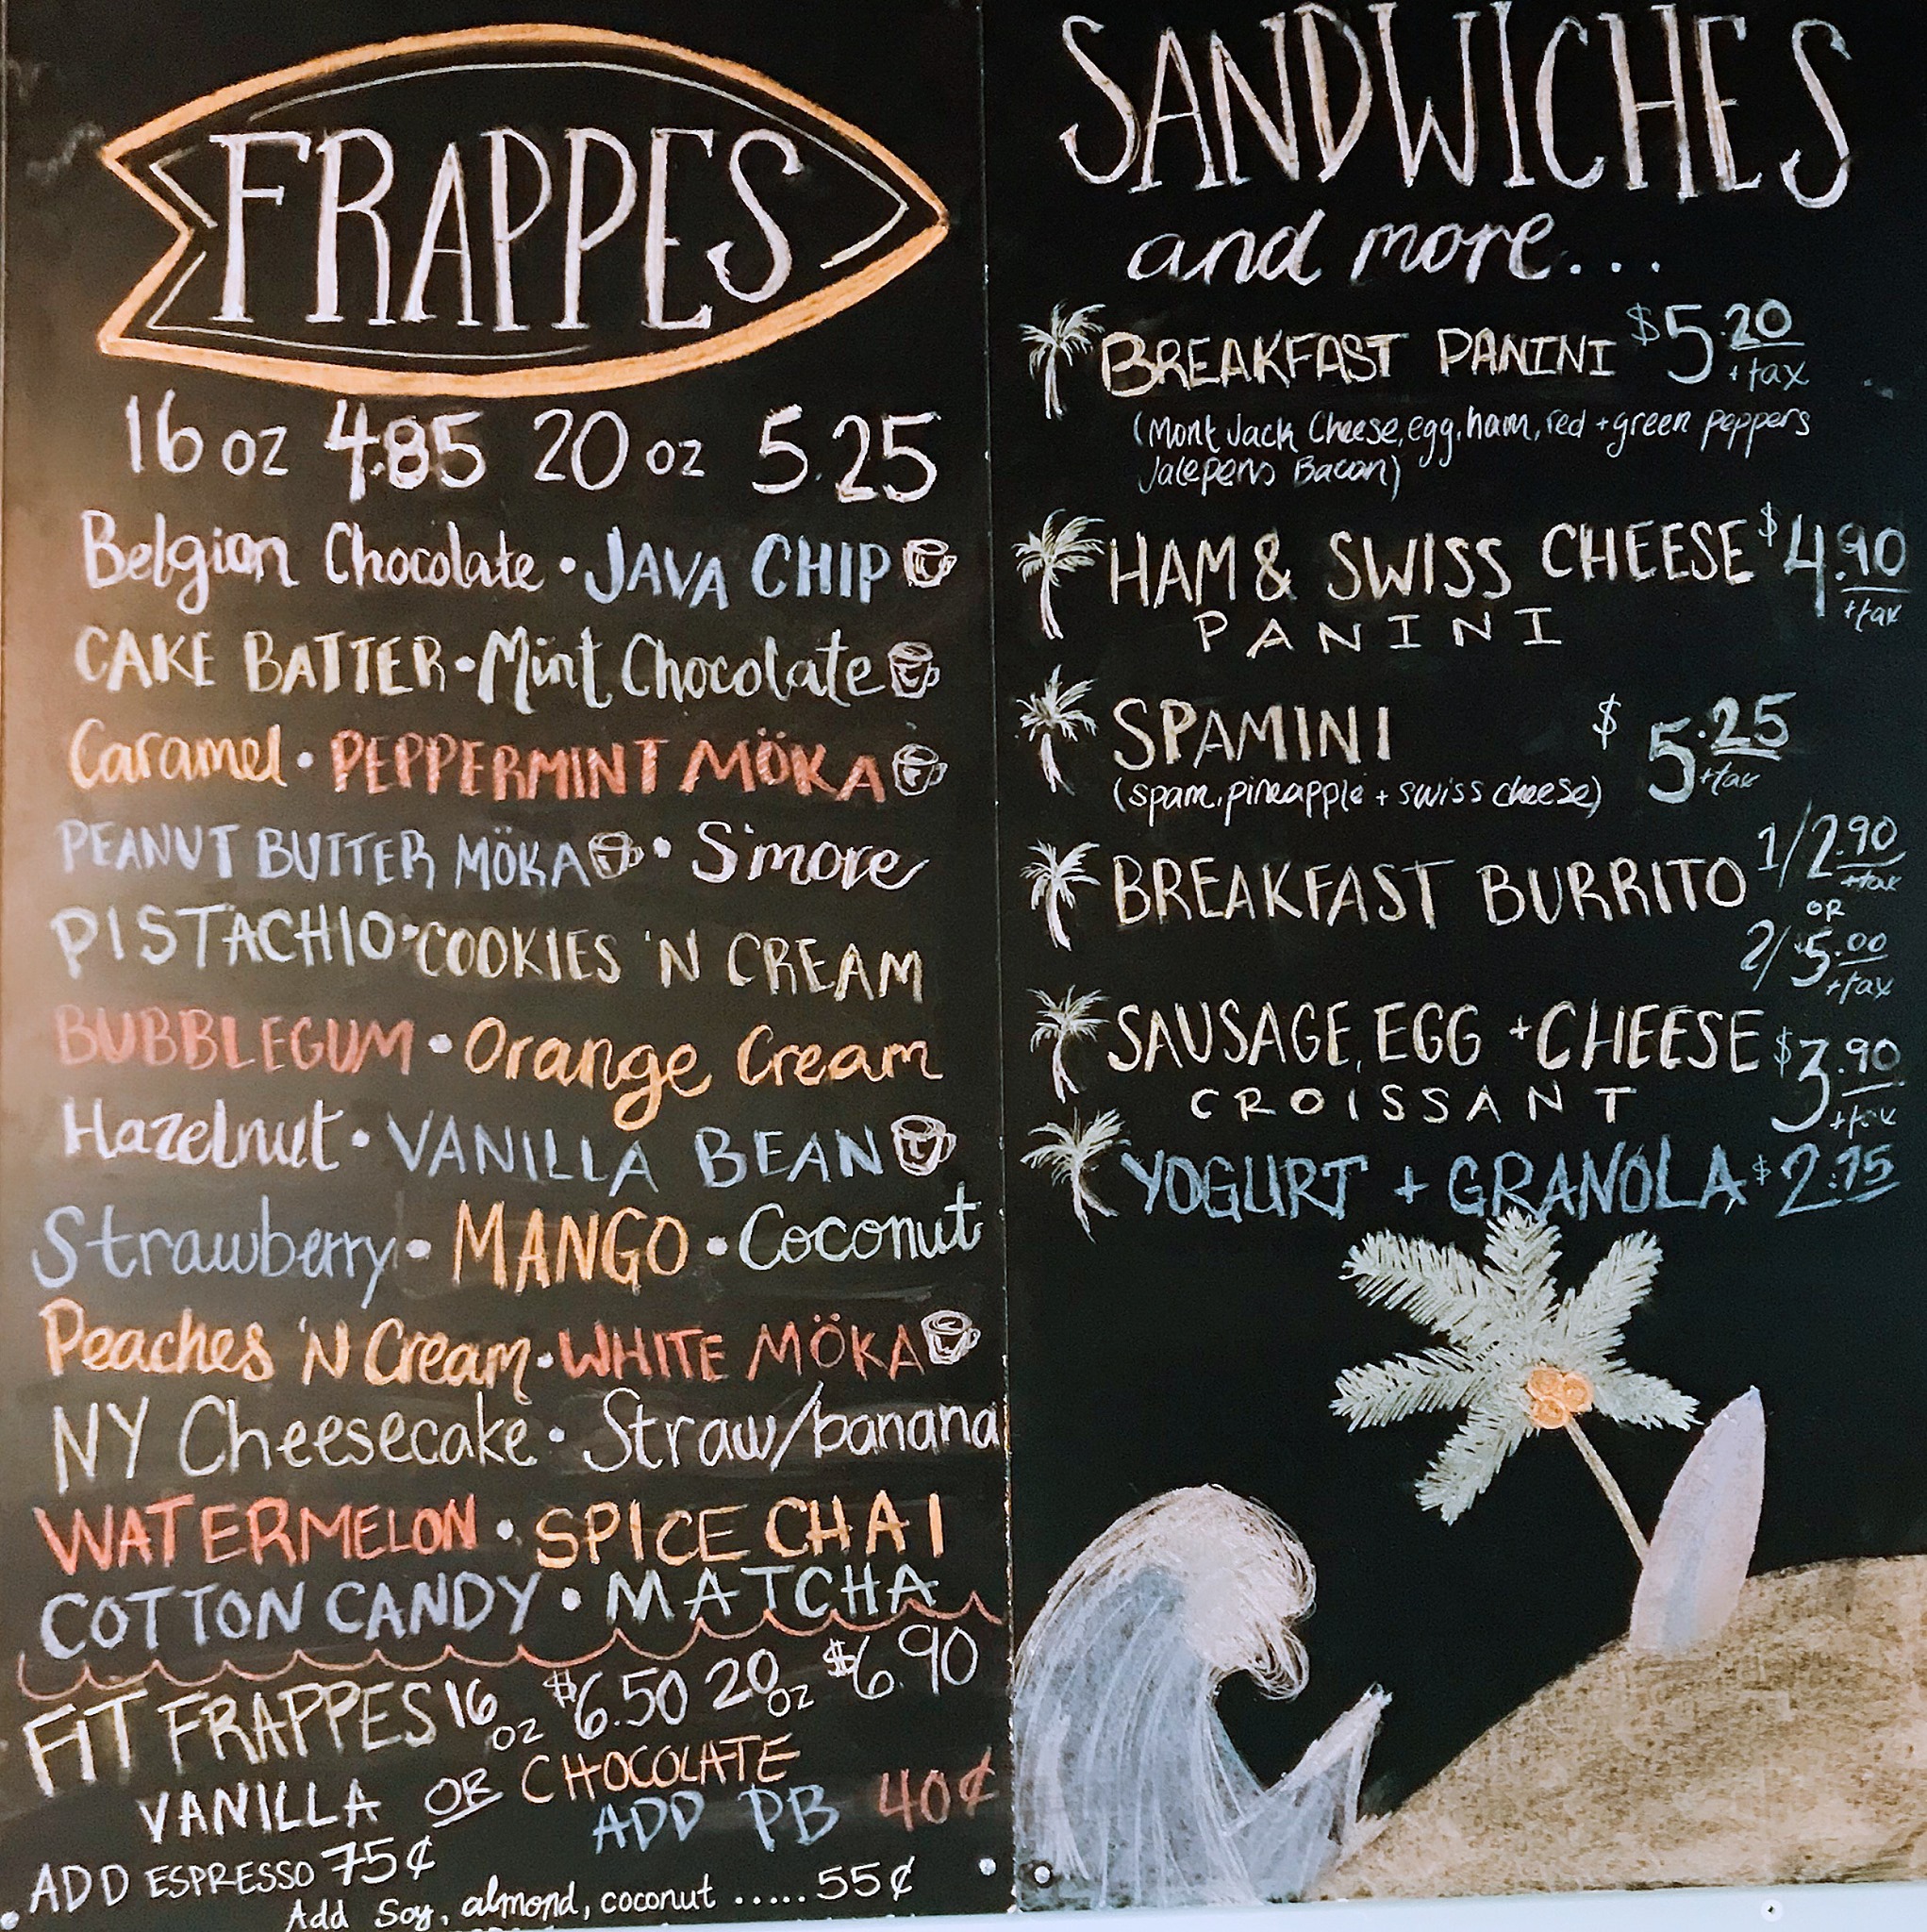 FRAPPES
16 oz 4.85 20 oz 5.25
Belgian Chocolate • JAVA CHIP
CAKE BATTER • Mint Chocolate
Caramel • PEPPERMINT MÖKA
PEANUT BUTTER MÖKA • S'more
PISTACHIO • COOKIES 'N CREAM
BUBBLEGUM • Orange Cream
Hazelnut • VANILLA BEAN
Strawberry • MANGO • Coconut
Peaches 'N Cream • WHITE MÖKA
NY Cheesecake • Straw/banana
WATERMELON • SPICE CHAI
COTTON CANDY • MATCHA
FIT FRAPPES 16 oz $6.50 20 oz $6.90
VANILLA OR CHOCOLATE
ADD PB 40¢
ADD ESPRESSO 75¢
Add Soy, almond, coconut ..... 55¢
SANDWICHES
and more...
BREAKFAST PANINI $5.20 +tax
(Mont Jack Cheese, egg, ham, red + green peppers
Jalepeno Bacon)
HAM & SWISS CHEESE $4.90 +tax
PANINI
SPAMINI $5.25 +tax
(spam, pineapple + swiss cheese)
BREAKFAST BURRITO 1/2.90 +tax
OR
2/5.00 +tax
SAUSAGE, EGG + CHEESE $3.90 +tax
CROISSANT
YOGURT + GRANOLA $2.75